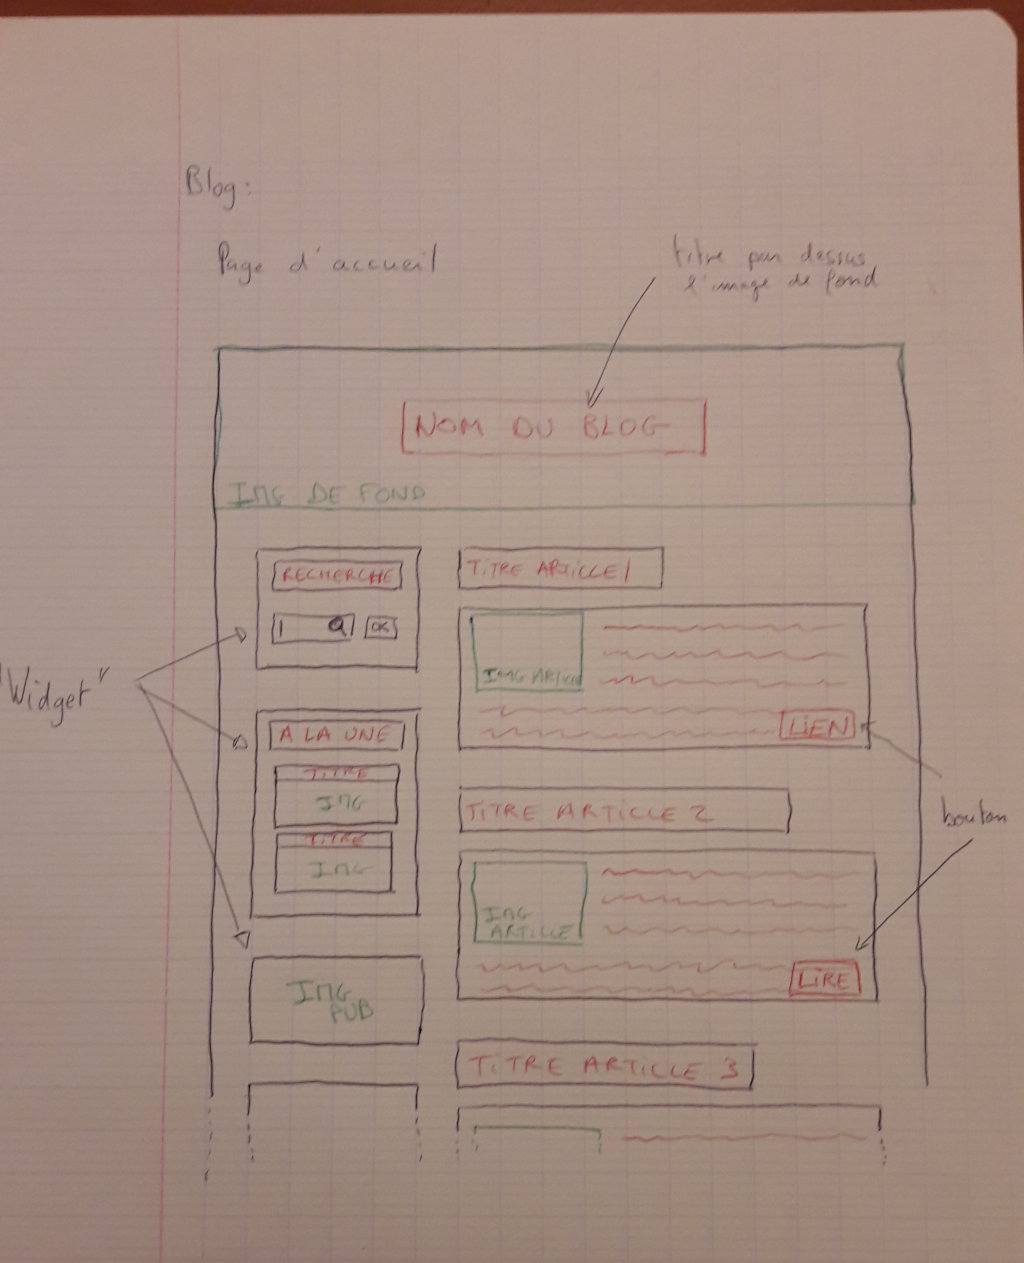 Blog:
Page d'accueil
titre par dessus
l'image de fond
NOM DU BLOG
IMG DE FOND
RECHERCHE
OK
"Widget"
A LA UNE
TITRE
IMG
TITRE
IMG
IMG
PUB
TITRE ARTICLE 1
IMG ARTICLE
LIEN
bouton
TITRE ARTICLE 2
IMG
ARTICLE
LIRE
TITRE ARTICLE 3